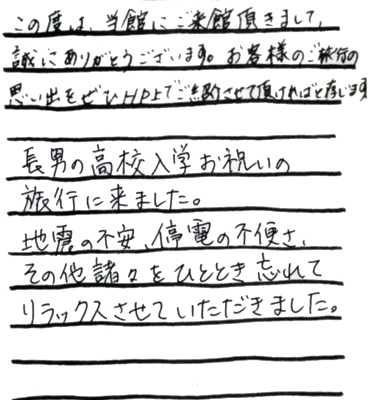 この度は、当館にご来館頂きまして、
誠にありがとうございます。お客様のご旅行の
思い出をぜひHP上でご紹介させて頂ければと存じます
長男の高校入学お祝いの
旅行に来ました。
地震の不安、停電の不便さ、
その他諸々をひととき忘れて
リラックスさせていただきました。